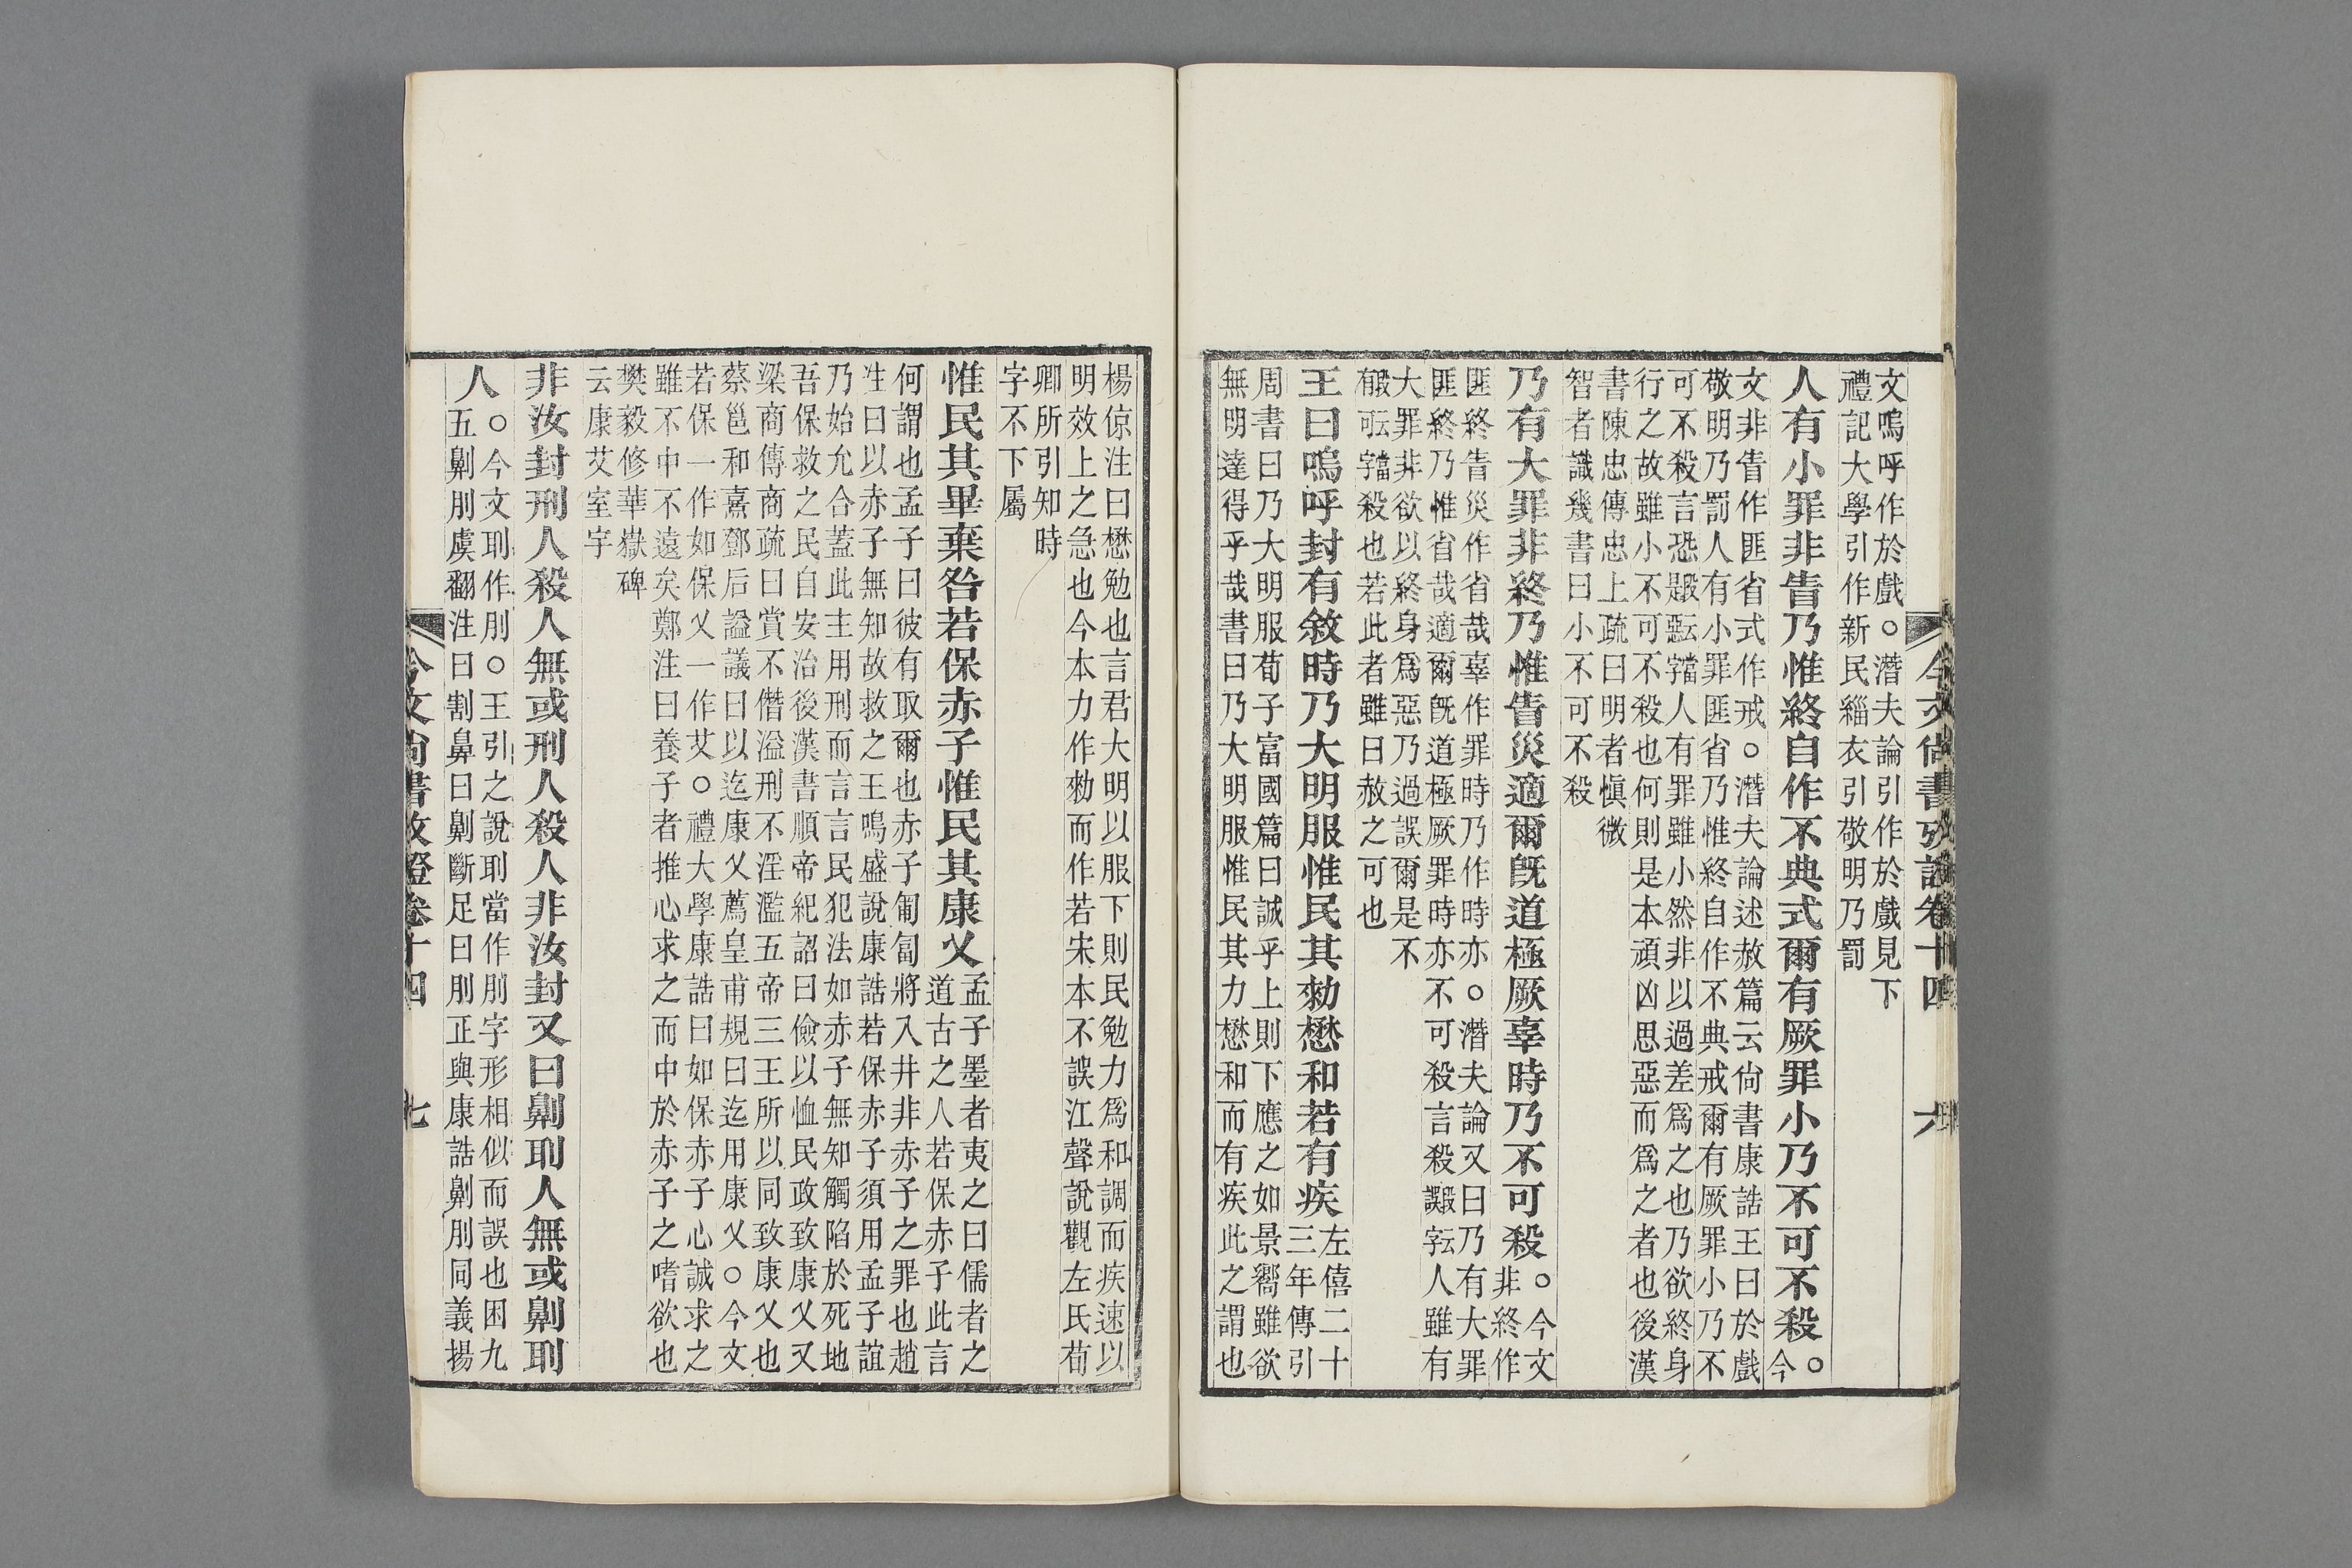 今文尙書攷證卷十四
六
文嗚呼作於戲○潛夫論引作於戲見下
禮記大學引作新民緇衣引敬明乃罰
人有小罪非眚乃惟終自作不典式爾有厥罪小乃不可不殺○今
文非眚作匪省式作戒○潛夫論述赦篇云尙書康誥王曰於戲
敬明乃罰人有小罪匪省乃惟終自作不典戒爾有厥罪小乃不
可不殺言恐人有罪雖小然非以過差爲之也乃欲終身
行之故雖小不可不殺也何則是本頑凶思惡而爲之者也後漢
書陳忠傳忠上疏曰明者愼微
智者識幾書曰小不可不殺
乃有大罪非終乃惟眚災適爾旣道極厥辜時乃不可殺○今文非終作
匪終眚災作省哉辜作罪時乃作時亦○潛夫論又曰乃有大罪
匪終乃惟省哉適爾旣道極厥罪時亦不可殺言殺人雖有
大罪非欲以終身爲惡乃過誤爾是不
殺也若此者雖曰赦之可也
王曰嗚呼封有敘時乃大明服惟民其勑懋和若有疾左僖二十三年傳引
周書曰乃大明服荀子富國篇曰誠乎上則下應之如景嚮雖欲
無明達得乎哉書曰乃大明服惟民其力懋和而有疾此之謂也
楊倞注曰懋勉也言君大明以服下則民勉力爲和調而疾速以
明效上之急也今本力作勑而作若宋本不誤江聲說觀左氏荀
卿所引知時
字不下屬
惟民其畢棄咎若保赤子惟民其康乂孟子墨者夷之曰儒者之道古之人若保赤子此言
何謂也孟子曰彼有取爾也赤子匍匐將入井非赤子之罪也趙
注曰以赤子無知故救之王鳴盛說康誥若保赤子須用孟子誼
乃始允合蓋此主用刑而言言民犯法如赤子無知觸陷於死地
吾保救之民自安治後漢書順帝紀詔曰儉以恤民政致康乂又
梁商傳商疏曰賞不僭溢刑不淫濫五帝三王所以同致康乂也
蔡邕和熹鄧后謚議曰以迄康乂薦皇甫規曰迄用康乂○今文
若保一作如保乂一作艾○禮大學康誥曰如保赤子心誠求之
雖不中不遠矣鄭注曰養子者推心求之而中於赤子之嗜欲也
樊毅修華嶽碑
云康艾室宇
非汝封刑人殺人無或刑人殺人非汝封又曰劓刵人無或劓刵
人○今文刵作刖○王引之說刵當作刖字形相似而誤也困九
五劓刖虞翻注曰割鼻曰劓斷足曰刖正與康誥劓刖同義揚
今文尙書攷證卷十四
七